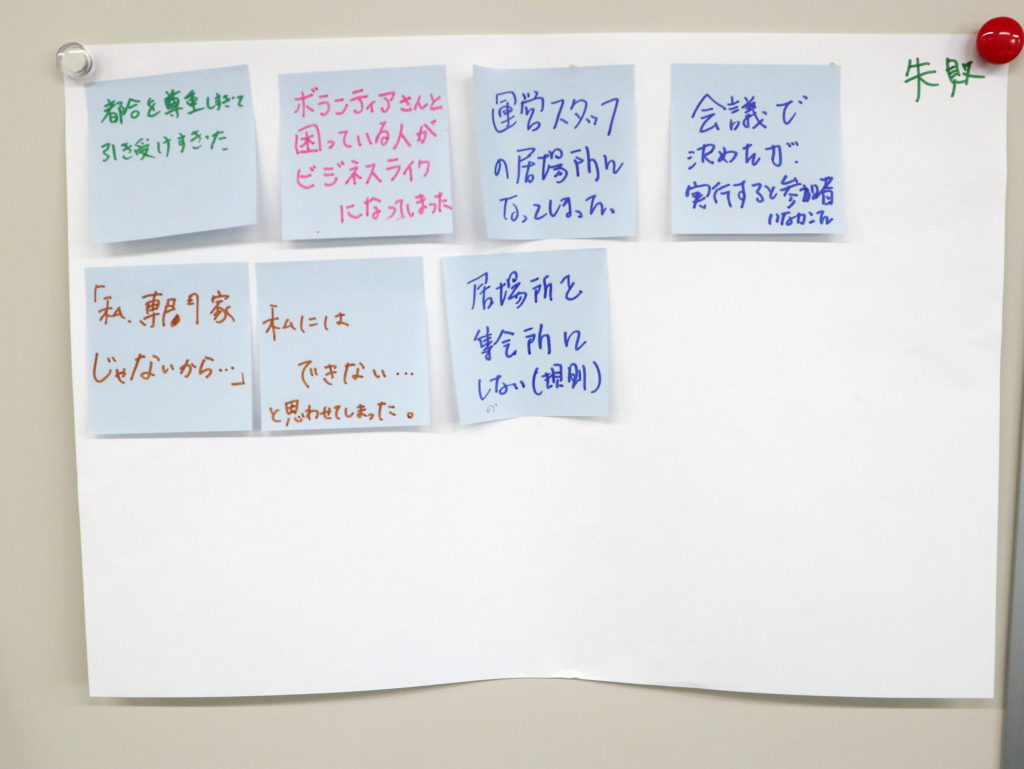 失敗
都合を尊重しすぎて
引き受けすぎた
ボランティアさんと
困っている人が
ビジネスライク
になってしまった
運営スタッフ
の居場所に
なってしまった。
会議で
決めたが、
実行すると参加者
いなかった
「私、専門家
じゃないから…」
私には
できない…
と思わせてしまった。
居場所を
集会所に
しない(規則)
の